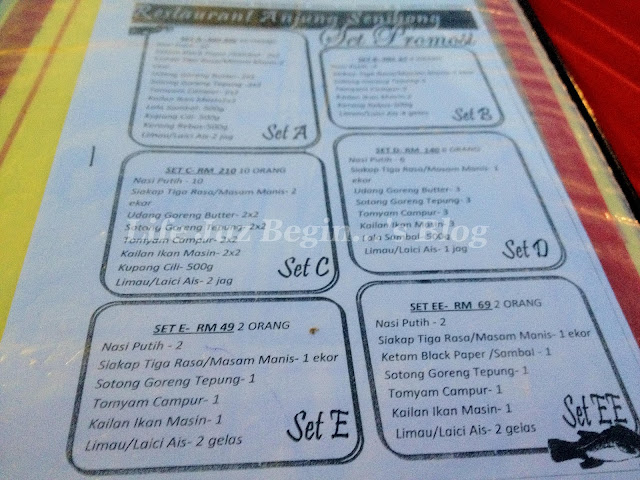 Restaurant Anjung Senibong
Set Promosi
Nasi Putih - 10
Sotong Goreng Tepung- 2x2
Tomyam Campur- 2x2
Kailan Ikan Masin2x2
Lala Sambal- 500g
Kupang Cili- 500g
Kerang Rebus-500g
Limau/Laici Ais-2 jag
Set A
Siakap Tiga Rasa/Masam Manis- 1 ekor
Sotong Goreng Tepung-
Tomyam Campur-
Kailan Ikan Masin-
Kerang Rebus-500g
Limau/Laici Ais- 4 gelas
Set B
SET C- RM 210 10 ORANG
Nasi Putih - 10
Siakap Tiga Rasa/Masam Manis- 2
ekor
Udang Goreng Butter- 2x2
Sotong Goreng Tepung- 2x2
Tomyam Campur- 2x2
Kailan Ikan Masin- 2x2
Kupang Cili- 500g
Limau/Laici Ais- 2 jag
Set C
SET D- RM 140 6 ORANG
Nasi Putih - 6
Siakap Tiga Rasa/Masam Manis- 1
ekor
Udang Goreng Butter- 3
Sotong Goreng Tepung- 3
Tomyam Campur- 3
Kailan Ikan Masin-
Lala Sambal- 500g
Limau/Laici Ais- 1 jag
Set D
Begin
Blog
SET E- RM 49 2 ORANG
Nasi Putih - 2
Siakap Tiga Rasa/Masam Manis- 1 ekor
Sotong Goreng Tepung- 1
Tomyam Campur- 1
Kailan Ikan Masin- 1
Limau/Laici Ais- 2 gelas
Set E
SET EE- RM 69 2 ORANG
Nasi Putih - 2
Siakap Tiga Rasa/Masam Manis- 1 ekor
Ketam Black Paper /Sambal - 1
Sotong Goreng Tepung- 1
Tomyam Campur - 1
Kailan Ikan Masin- 1
Limau/Laici Ais- 2 gelas
Set EE